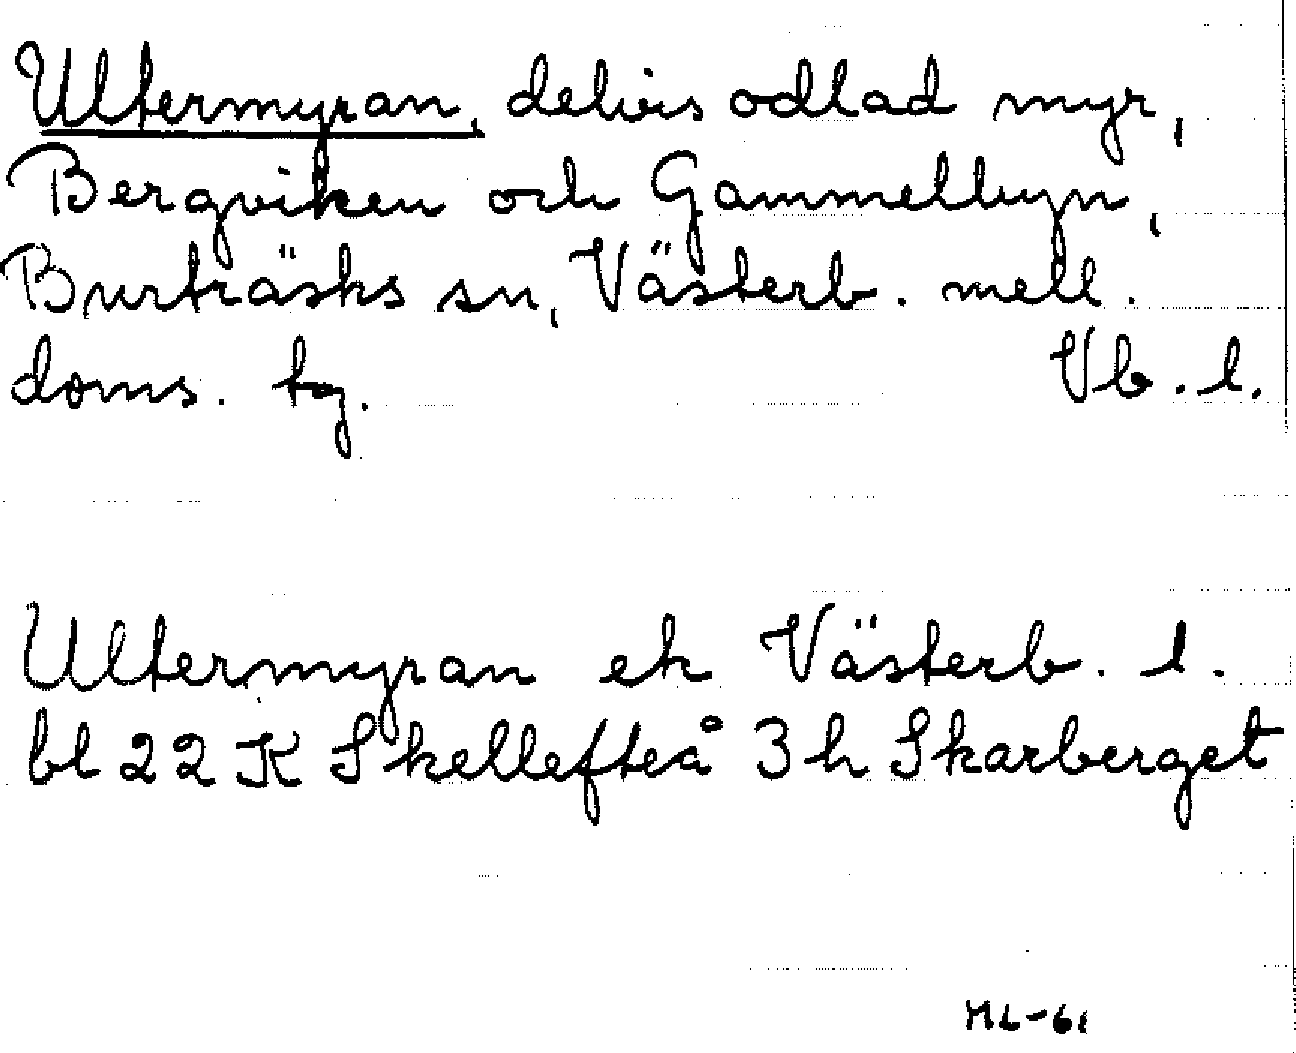 Ultermyran, delvis odlad myr,
Bergviken och Gammelbyn,
Burträsks sn, Västerb. mell.
doms. tg. Vb. l.
Ultermyran ek Västerb. l.
bl 22 K Skellefteå 3 h Skarberget
ML-61